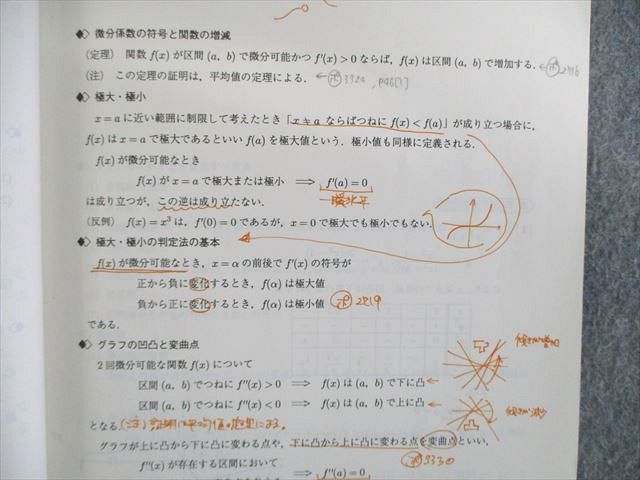 ◆ 微分係数の符号と関数の増減
(定理) 関数 f(x) が区間 (a, b) で微分可能かつ f'(x)>0 ならば，f(x) は区間 (a, b) で増加する.
(注) この定理の証明は，平均値の定理による.
◆ 極大・極小
x=a に近い範囲に制限して考えたとき「x≠a ならばつねに f(x)<f(a)」が成り立つ場合に，
f(x) は x=a で極大であるといい f(a) を極大値という．極小値も同様に定義される.
f(x) が微分可能なとき
f(x) が x=a で極大または極小 ⟹ f'(a)=0
一瞬水平
は成り立つが，この逆は成り立たない.
(反例) f(x)=x³ は，f'(0)=0 であるが，x=0 で極大でも極小でもない.
◆ 極大・極小の判定法の基本
f(x) が微分可能なとき，x=α の前後で f'(x) の符号が
正から負に変化するとき，f(α) は極大値
負から正に変化するとき，f(α) は極小値
である.
◆ グラフの凹凸と変曲点
2回微分可能な関数 f(x) について
区間 (a, b) でつねに f''(x)>0 ⟹ f(x) は (a, b) で下に凸
区間 (a, b) でつねに f''(x)<0 ⟹ f(x) は (a, b) で上に凸
となる.
グラフが上に凸から下に凸に変わる点や，下に凸から上に凸に変わる点を変曲点といい，
f''(x) が存在する区間において
⟹ f''(a)=0